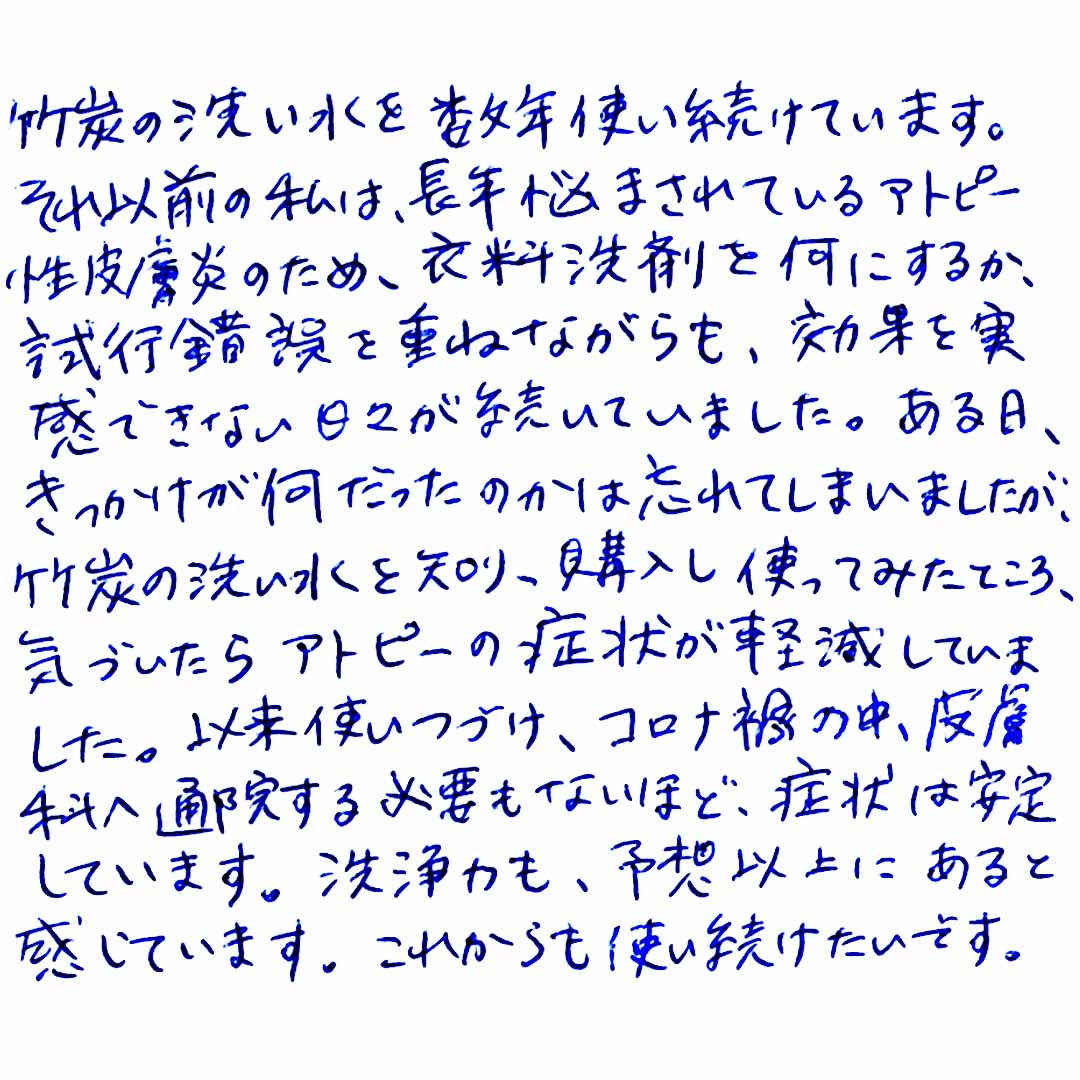 竹炭の洗い水を数年使い続けています。
それ以前の私は、長年悩まされているアトピー
性皮膚炎のため、衣料洗剤を何にするか、
試行錯誤を重ねながらも、効果を実
感できない日々が続いていました。ある日、
きっかけが何だったのかは忘れてしまいましたが、
竹炭の洗い水を知り、購入し使ってみたところ、
気づいたらアトピーの症状が軽減していま
した。以来使いつづけ、コロナ禍の中、皮膚
科へ通院する必要もないほど、症状は安定
しています。洗浄力も、予想以上にあると
感じています。これからも使い続けたいです。